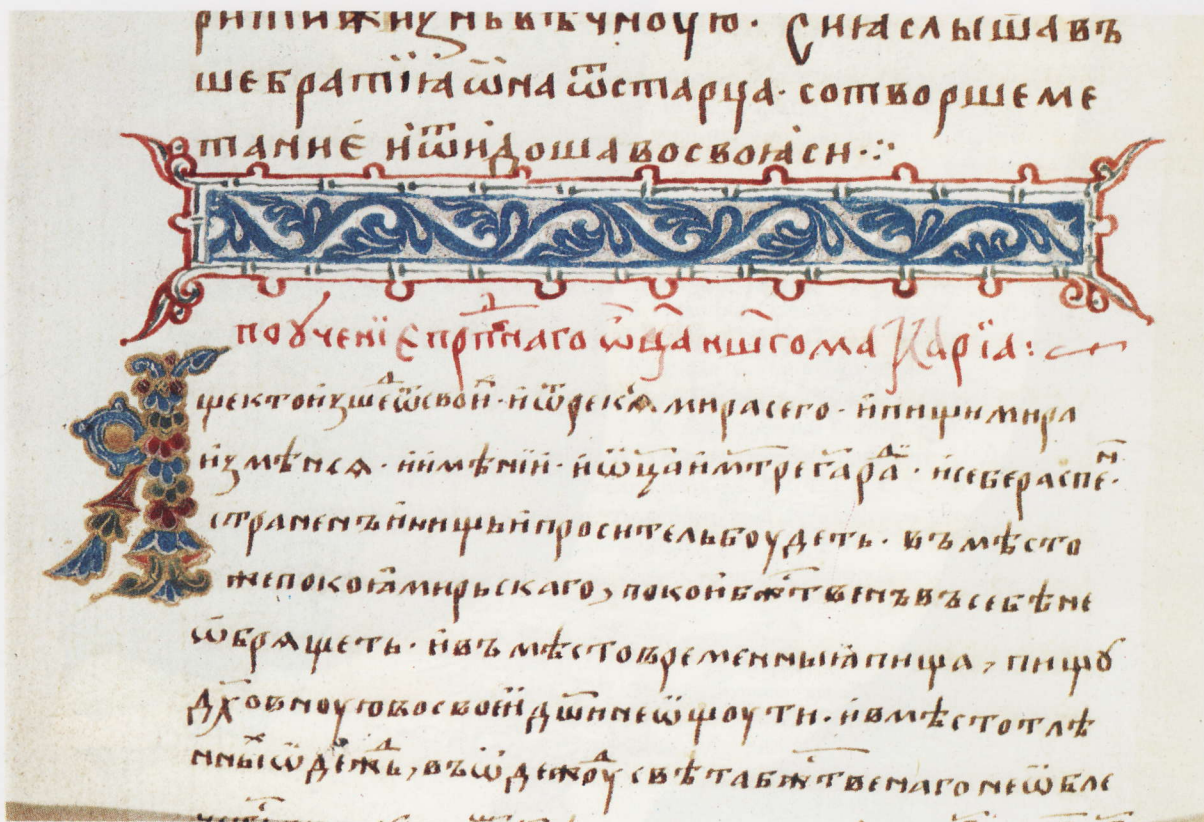 рити жизнь вѣчноую · Сиꙗ слышавъ
ше братїꙗ ѡ̑на ѿ старца · сотворше ме
таниє и҆ ѿидоша во своꙗси ⁘
поꙋченїє прпⷣбнаго ѿц҃а нш҃го макарїа :
Аще кто изшеⷣ ѿ свои҆ⷯ · и҆ ѿрекъсѧ мира сего · и҆ пищи мира
измѣнсѧ · и҆ имѣнїи · и҆ ѿц҃а и҆ мт҃ре
и҆ себе распеⁿ ·
страненъ и҆ нищь и҆ проситель боудеть · въ мѣсто
же покоꙗ мирьскаго, покои бж҃твенъ въ себѣ не
ѡ̑брящеть · и҆ въ мѣсто временныꙗ пища, пищꙋ
дх҃овноую во своеи҆ дш҃и не ѡ̑щоути · и҆ в мѣсто тлѣ
нныⷯ ѡ̑дежⷣь, въ ѡ̑дежⷣоу свѣта бж҃твенаго не ѡ̑бле